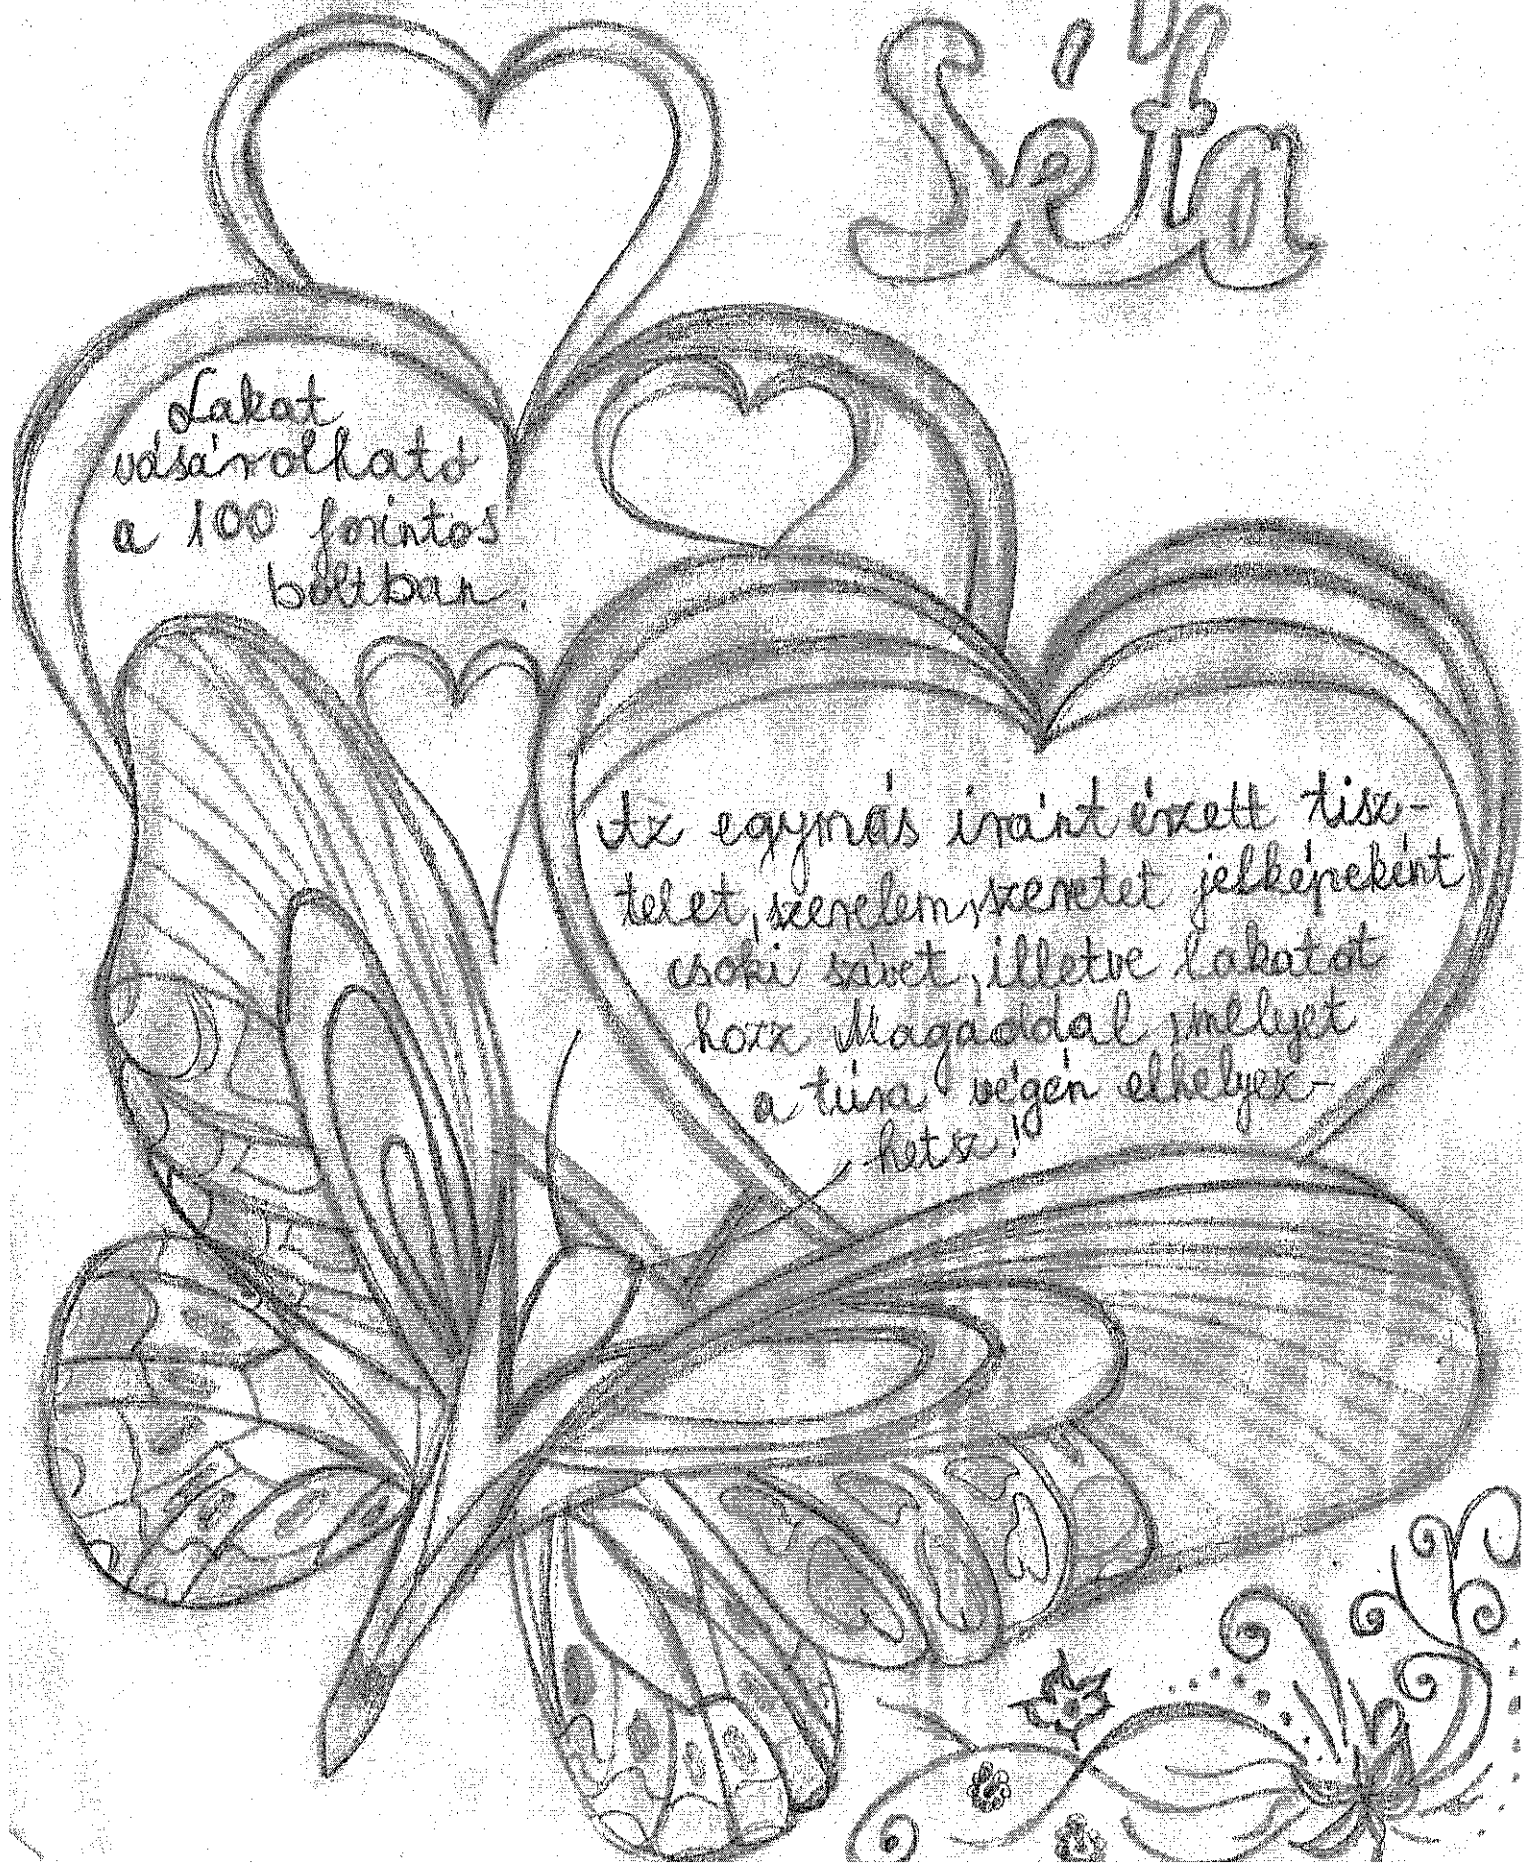 Séta
Lakat
vásárolható
a 100 forintos
boltban.
Az egymás iránt érzett tisz-
telet, szerelem, szeretet jelképeként
csoki szívet, illetve lakatot
hozz Magaddal, melyet
a túra végén elhelyez-
hetsz!